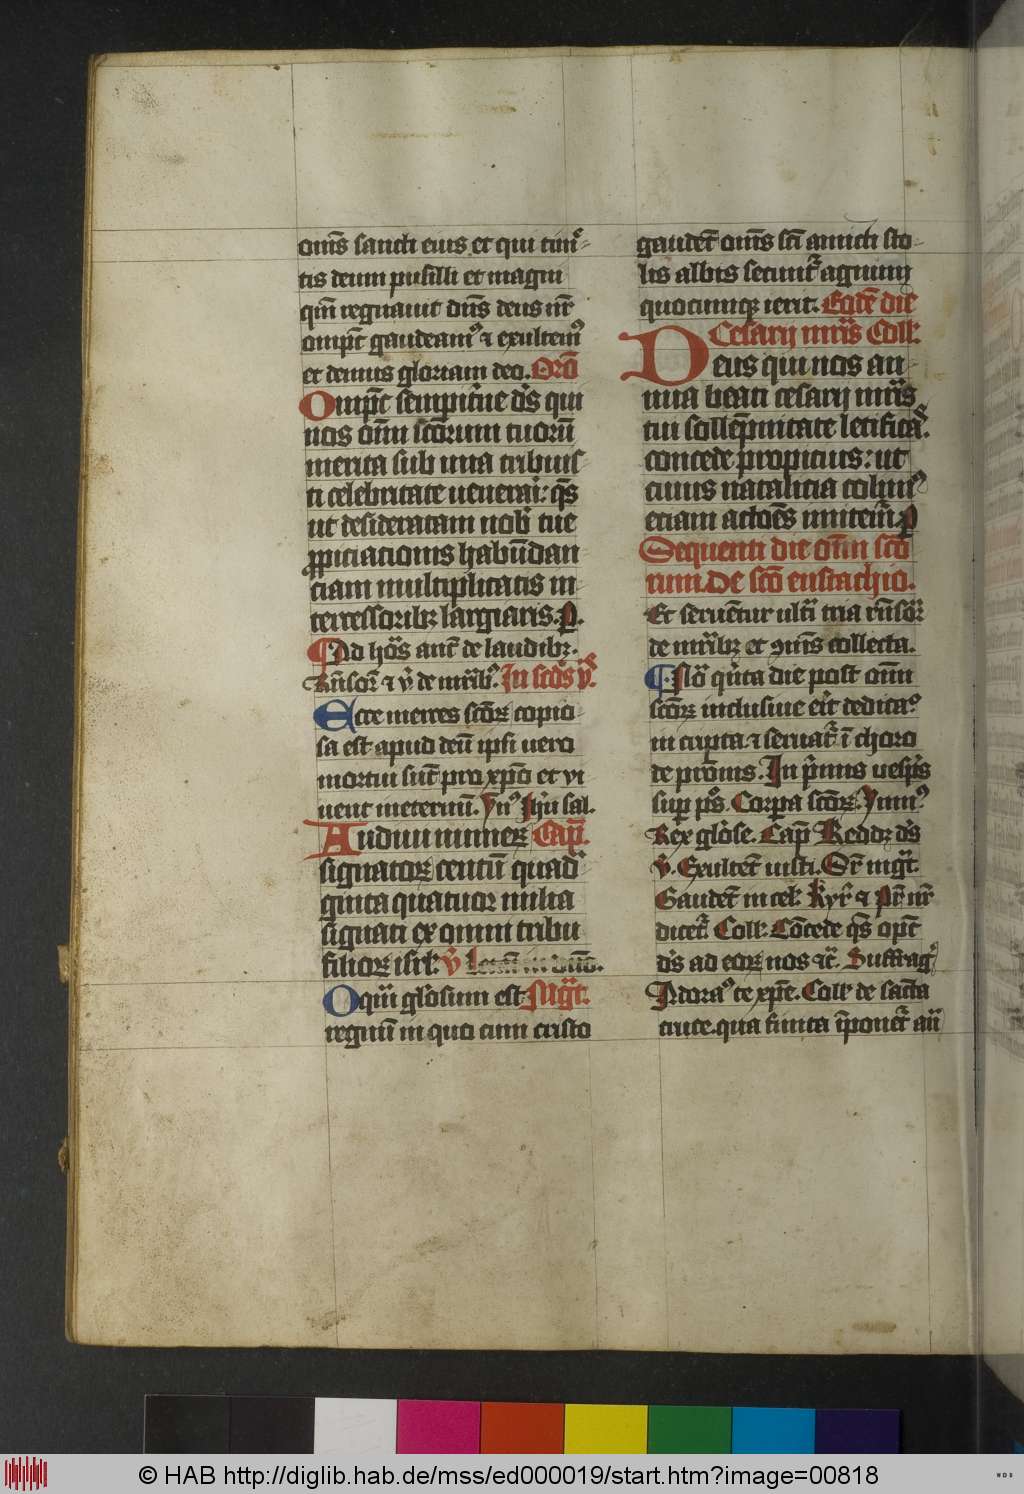 om̄s sancti eius et qui tim̄-
tis deum pusilli et magni
qm̄ regnauit dn̄s deus nr̄
omp̄t gaudeamꝰ ⁊ exultemꝰ
et demus gloriam deo. Orō
Omp̄t sempit'ne ds̄ qui
nos om̄i scōrum tuorū
merita sub una tribuis-
ti celebritate uenerai: qs̄
ut desideratam nob' tue
ꝓpiciacionis habūdan
ciam multiplicatis in
tercessoribꝫ largiaris. ꝑ.
¶ Ad hōs ant̄ de laudibꝫ.
Rn̄sor̄ ⁊ v̄ de mr̄ibꝫ. In scd̄s v̄s.
Ecce merces scōꝝ copio-
sa est apud deū ipsi uero
mortui sūt pro xpō et vi
uent ineternū. Yn̄ꝰ Jhū sal.
Audiui numerꝝ Cap̄.
signatoꝝ centū quad'
ginta quatuor milia
signati ex omni tribu
filioꝝ isrl'. v̄ Letam̄ in dn̄o.
O qm̄ gl'osum est Mgt̄.
regnū in quo cum cristo
gaudēt om̄s sc̄i amicti sto-
lis albis secunt̄ agnum
quocumqꝫ ierit. Eodē die
Cesarij mr̄is Coll'.
Deus qui nos an-
nua beati cesarij mr̄is
tui sollēpnitate letificas.
concede propicius: ut
cuius natalicia colimꝰ
eciam actōēs imitem̄. ꝑ
Sequenti die om̄i scō
rum. De scō eustachio.
Et seruēntur ultī tria rn̄soꝝ
de mr̄ibꝫ et ꝯm̄s collecta.
¶ Nō q̄nta die post om̄i
scōꝝ inclusiue er̄it dedicaꝰ
in cripta. ⁊ seruat̄ ī choro
de prōmis. In p̄mis uesp̄is
sup ps̄. Corpa scōꝝ. Ymnꝰ
Rex gl'ose. Cap̄ Reddꝫ ds̄
v̄. Exultēt iusti. Or̄ mgt̄.
Gaudēt in cel'. Kyr̄ ⁊ Pr̄ nr̄
dicet̄ Coll'. Cōcede qs̄ opt̄
ds̄ ad eoꝝ nos ⁊c̄. Suffrag'
Adoraꝰ te xpē. Coll' de sancta
cruce. qua finita īponet̄ añ
© HAB http://diglib.hab.de/mss/ed000019/start.htm?image=00818